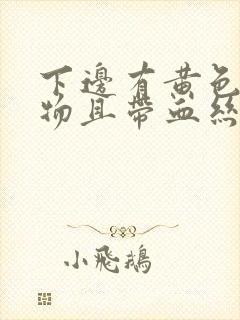 下邊有黃色
物且帶血絲
小飛鵝